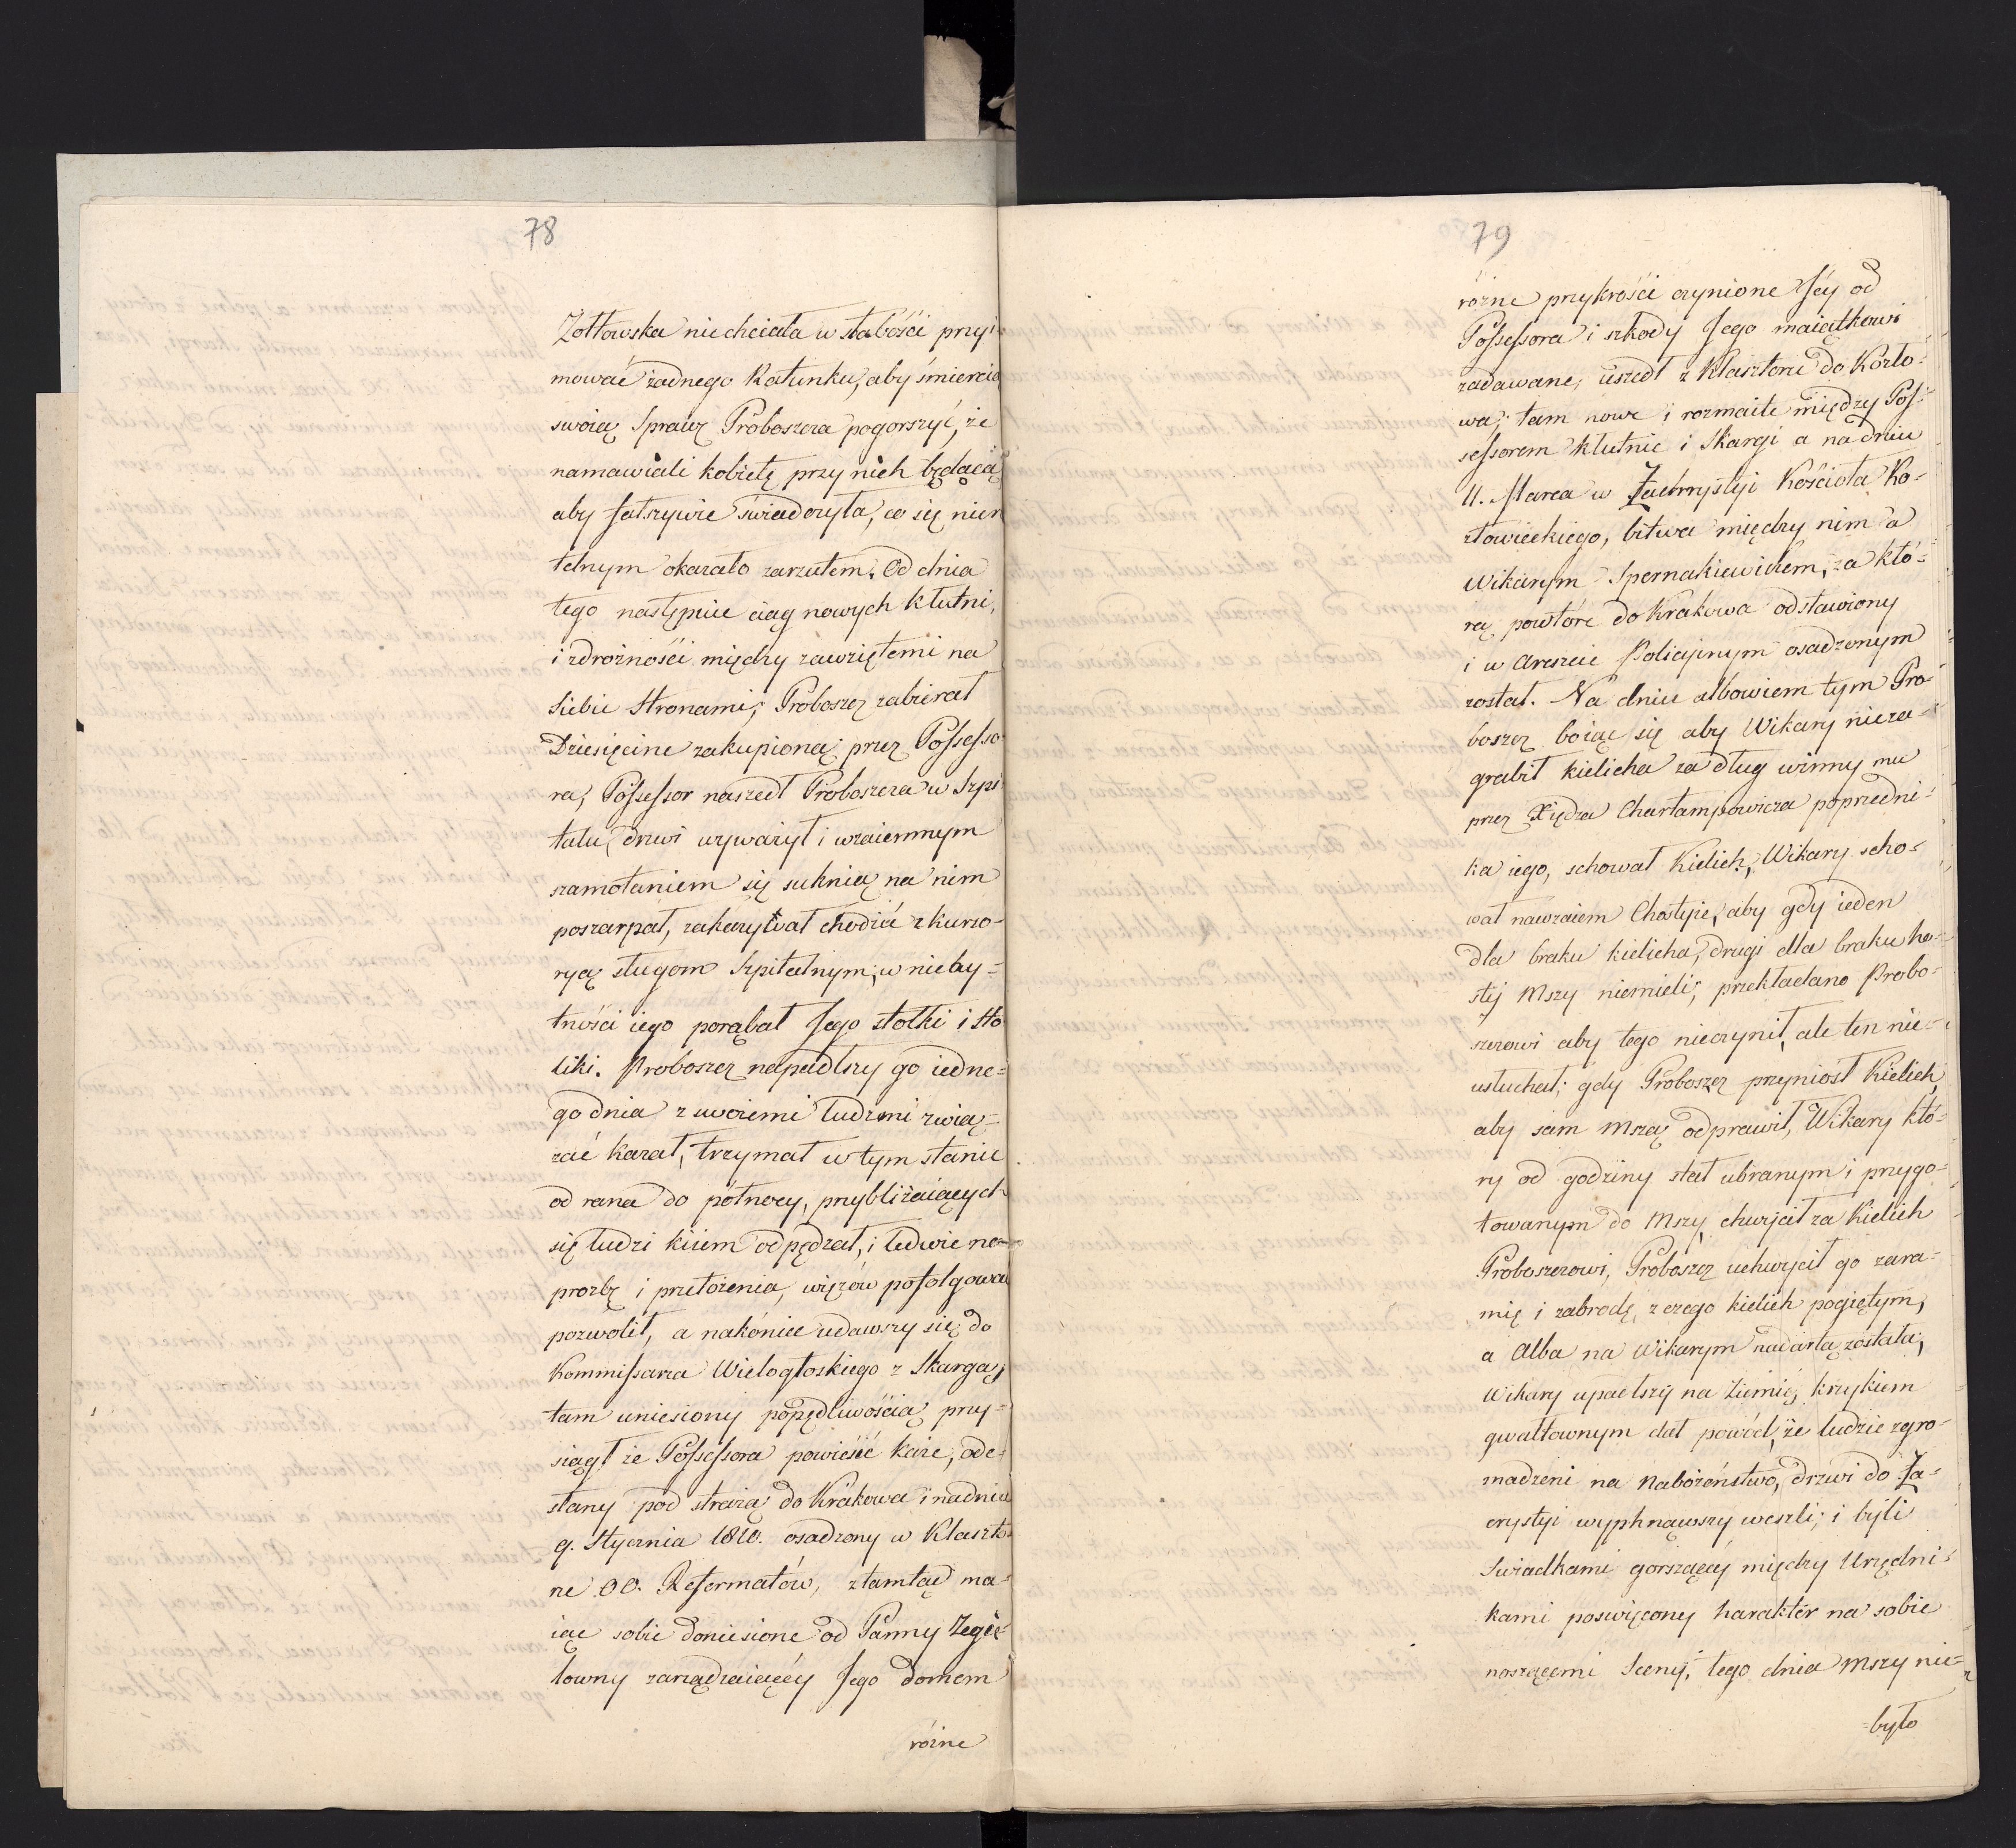 78
Zołtowska niechciała w słabości przyi-
mować żadnego Ratunku, aby śmiercią
swoią Sprawę Proboszcza pogorszyć, że
namawiali kobietę przy nich będącą
aby fałszywie świadczyła, co się nierze
telnym okazało zarzutem. Od dnia
tego następuie ciąg nowych kłutni,
i zdrożności między zawziętemi na
Siebie Stronami; Proboszcz zabierał
Dziesięcine zakupioną przez Possesso
ra, Possessor naszedł Proboszcza w Szpi
talu, drzwi wyważył i wzaiemnym
szamotaniem się suknią na nim
poszarpał, zakazywał chodzić z kurso-
ryą sługom Szpitalnym, w nieby-
tności iego porąbał Jego stołki i sto
liki. Proboszcz napadłszy go iedne-
go dnia z swoiemi ludzmi zwią-
zać kazał, trzymał w tym stanie
od rana do północy, przybliżaiących
się ludzi kiiem odpędzał, i ledwie na
prozbę i przełożenia, więzów pofolgować
pozwolił, a nakóniec udawszy się do
Kommissarza Wielogłoskiego z Skargą,
tam uniesiony popędliwością przy-
siągł że Possessora powiesić każe, ode-
słany pod strażą do Krakowa i nadniu
9. Stycznia 1810. osadzony w Klaszto
rze OO. Reformatów, ztamtąd ma-
iąc sobie doniesione od Panny
łowny zarządzaiącéy Jego domem
różne
79
różne przykrości czynione Jéy od
Possessora i szkody Jego maiątkowi
zadawane, uszedł z Klasztoru do Kozło-
wa; tam nowe i rozmaite między Pos-
sessorem kłutnie i Skargi a na dniu
11. Marca w Zachrystyi Kościoła Ko-
złowieckiego, bitwa między nim a
Wikarym Spernakiewiczem, za któ-
rą powtóre do Krakowa odstawiony
i w Areszcie Policyinym osadzonym
został. Na dniu albowiem tym Pro-
boszcz boiąc się aby Wikary nieza-
grabił kielicha za dług winny mu
przez Xiędza Charłampowicza poprzedni-
ka iego, schował Kielich, Wikary scho-
wał nawzaiem Hostyie, aby gdy ieden
dla braku kielicha, drugi dla braku ho-
styj Mszy niemieli; przekładano Probo-
szczowi aby tego nieczynił, ale ten nie-
usłuchał; gdy Proboszcz przyniósł Kielich,
aby sam Mszą odprawił, Wikary któ-
ry od godziny stał ubranym i przygo-
towanym do Mszy, chwycił za Kielich
Proboszczowi, Proboszcz uchwycił go zara-
mię i zabrodę, z czego kielich pogiętym,
a Alba na Wikarym nadartą została;
Wikary upadłszy na Ziemię, krzykiem
gwałtownym dał powód, że ludzie zgro-
madzeni na Nabożeństwo, drzwi do Za-
crystyi wyphnąwszy weszli; i byli
Swiadkami gorszącéy między Urzędni-
kami poswięcony harakter na sobie
noszącemi Sceny, tego dnia Mszy nie-
było